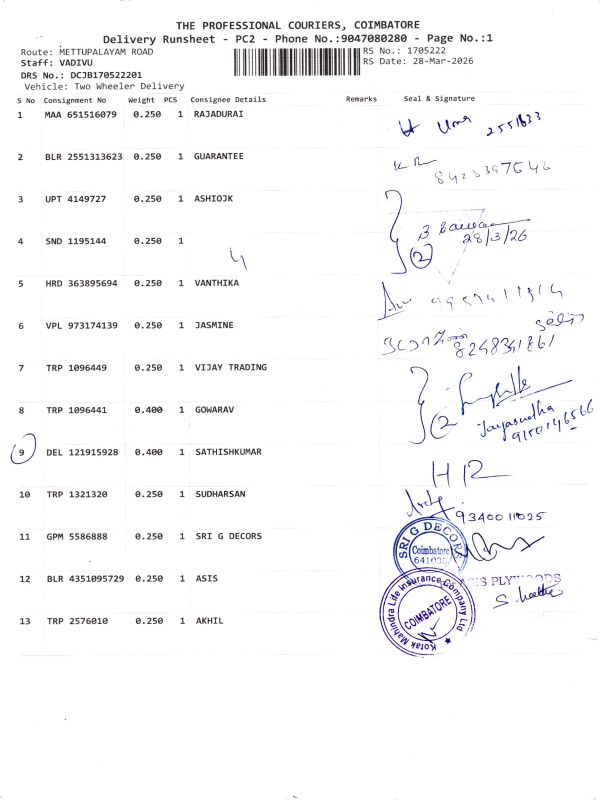 THE PROFESSIONAL COURIERS, COIMBATORE
Delivery Runsheet - PC2 - Phone No.:9047080280 - Page No.:1
Route: METTUPALAYAM ROAD
RS No.: 1705222
Staff: VADIVU
RS Date: 28-Mar-2026
DRS No.: DCJB170522201
Vehicle: Two Wheeler Delivery
S No Consignment No Weight PCS Consignee Details Remarks Seal & Signature
1 MAA 651516079 0.250 1 RAJADURAI
2 BLR 2551313623 0.250 1 GUARANTEE
3 UPT 4149727 0.250 1 ASHIOJK
28/3/26
2
4 SND 1195144 0.250 1
5 HRD 363895694 0.250 1 VANTHIKA
6 VPL 973174139 0.250 1 JASMINE
7 TRP 1096449 0.250 1 VIJAY TRADING
8 TRP 1096441 0.400 1 GOWARAV
2
Jayasudha
9150146566
9 DEL 121915928 0.400 1 SATHISHKUMAR
10 TRP 1321320 0.250 1 SUDHARSAN
9340011025
11 GPM 5586888 0.250 1 SRI G DECORS
SRI G DECORS
Coimbatore
12 BLR 4351095729 0.250 1 ASIS
ASIS PLYWOODS
13 TRP 2576010 0.250 1 AKHIL
Kotak Mahindra Life Insurance Company Ltd
COIMBATORE